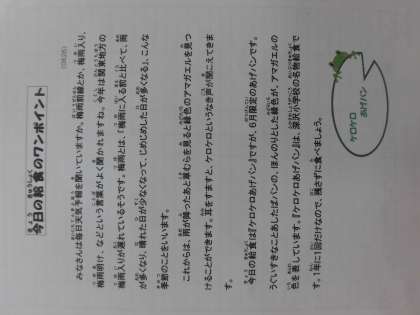 今日の給食のワンポイント
(06.26)
みなさんは毎日天気予報を聞いていますか。梅雨前線とか、梅雨入り、
梅雨明け、などという言葉がよく聞かれますね。今年は関東地方の
梅雨入りが遅れているそうです。梅雨とは、「梅雨に入る前と比べて、雨
が多くなり、晴れた日が少なくなって、じめじめした日が多くなる」、こんな
季節のことをいいます。
これからは、雨が降ったあと草むらを見ると緑色のアマガエルを見つ
けることができます。耳をすますと、ケロケロというなき声が聞こえてきま
す。
今日の給食は『ケロケロあげパン』ですが、6月限定のあげパンです。
うぐいすきなことあしたばのパンの、ほんのりとした緑色が、アマガエルの
色を表しています。『ケロケロあげパン』は、深沢小学校の名物給食で
す。1年に1回だけなので、残さずに食べましょう。
ケロケロ
あげパン